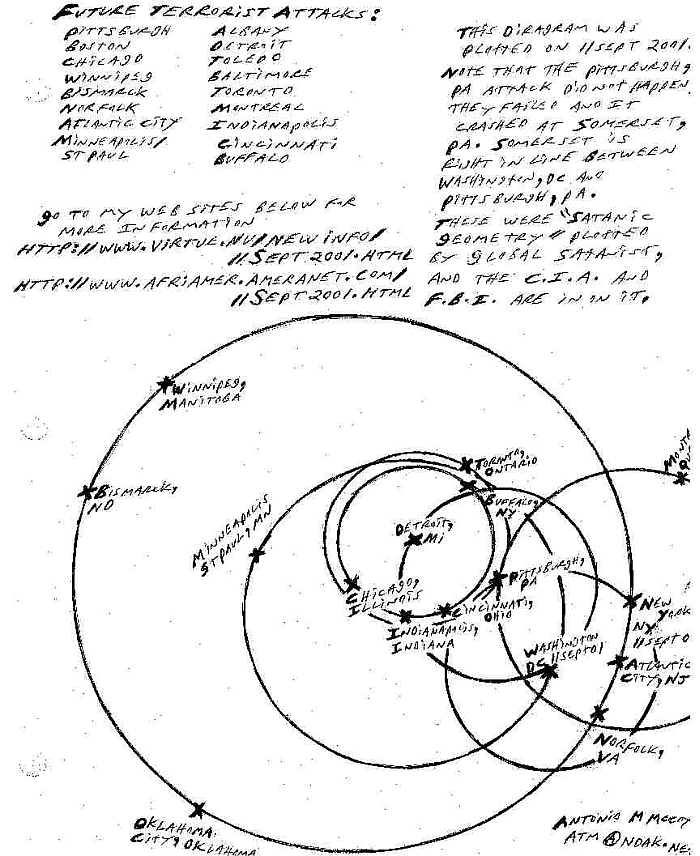 FUTURE TERRORIST ATTACKS:
PITTSBURGH ALBANY
BOSTON DETROIT
CHICAGO TOLEDO
WINNIPEG BALTIMORE
BISMARCK TORONTO
NORFOLK MONTREAL
ATLANTIC CITY INDIANAPOLIS
MINNEAPOLIS/ CINCINNATI
ST PAUL BUFFALO
THIS DIAGRAM WAS
PLOTTED ON 11 SEPT 2001.
NOTE THAT THE PITTSBURGH,
PA ATTACK DID NOT HAPPEN.
THEY FAILED AND IT
CRASHED AT SOMERSET,
PA. SOMERSET IS
RIGHT IN LINE BETWEEN
WASHINGTON, DC AND
PITTSBURGH, PA.
THESE WERE "SATANIC
GEOMETRY" PLOTTED
BY GLOBAL SATANIST,
AND THE C.I.A. AND
F.B.I. ARE IN ON IT.
GO TO MY WEB SITES BELOW FOR
MORE INFORMATION
HTTP://WWW.VIRTUE.NU/NEWINFO/
11SEPT2001.HTML
HTTP://WWW.AFRIAMER.AMERANET.COM/
11SEPT2001.HTML
WINNIPEG,
MANITOBA
BISMARCK,
ND
MINNEAPOLIS
ST PAUL, MN
TORONTO,
ONTARIO
BUFFALO,
NY
DETROIT,
MI
CHICAGO,
ILLINOIS
INDIANAPOLIS,
INDIANA
CINCINNATI,
OHIO
PITTSBURGH,
PA
WASHINGTON
DC 11SEPT01
NEW
YORK
NY,
11SEPT0
ATLANTIC
CITY, NJ
NORFOLK,
VA
OKLAHOMA
CITY, OKLAHOMA
ANTONIO M MCCOY
ATM@NDAK.NE